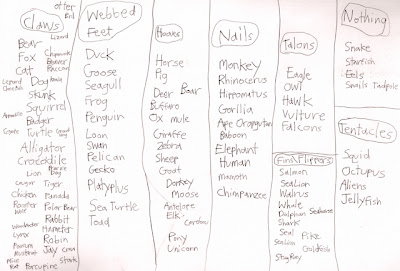 otter
Bird
Claws
Lizard
Bear
Fox
Chipmunk
Beaver
Cat
Raccoon
Dog
Leopard
Cheetah
Skunk
Squirrel
Badger
Coyote
Turtle
Alligator
Crocodile
Lion
Prairie Dog
Cougar
Tiger
Chicken
Panada
Rooster
Polar Bear
Wolf
Rabbit
Woodpecker
Hamster
Robin
Possum
Jay
crow
Muskrat
Mice
Stork
Rat
Porcupine
Webbed
Feet
Duck
Goose
Seagull
Frog
Penguin
Loon
Swan
Pelican
Gecko
Platyplus
Sea Turtle
Toad
Hooves
Horse
Pig
Deer
Boar
Buffaro
Ox
mule
Giraffe
Zebra
Sheep
Goat
Donkey
Moose
Antelope
Elk
Caribou
Pony
Unicorn
Nails
Monkey
Rhinocerus
Hippomatus
Gorillia
Ape
Orangutan
Baboon
Elephant
Human
mamoth
Chimpanzee
Talons
Eagle
Owl
Hawk
Vulture
Falcons
Fin/Flippers
Salmon
SeaLion
Walrus
Whale
Dalphan
Seahorse
Shark
Seal
Pike
Sealion
Goldfish
StingRay
Nothing
Snake
Starfish
Eels
Snails
Tadpole
Tentacles
Squid
Octopus
Aliens
Jellyfish